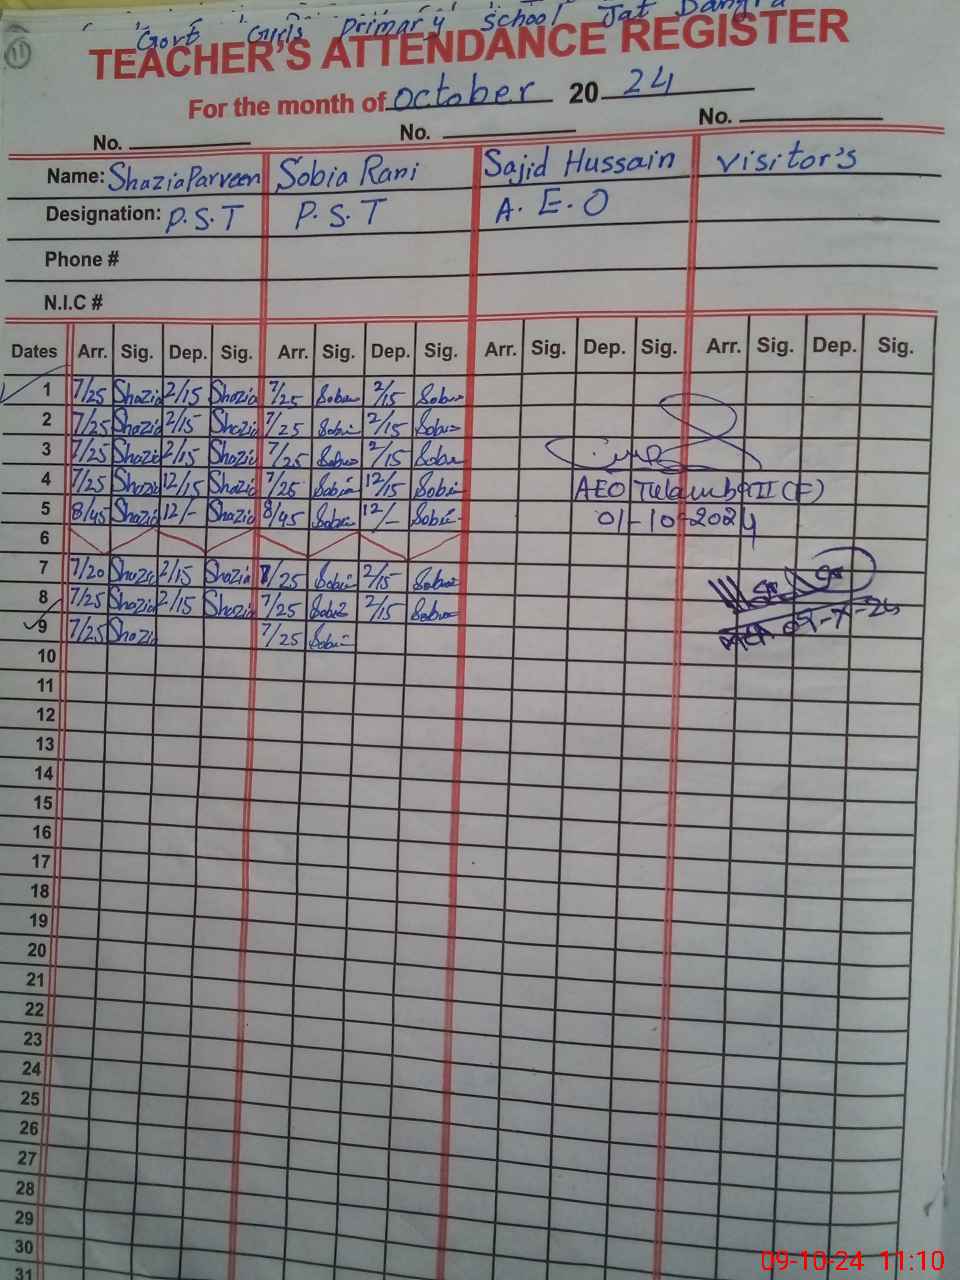 11
Govt Girls Primary School Jat
TEACHER'S ATTENDANCE REGISTER
For the month of October 20 24
No. No. No.
Name: Shazia Parveen Sobia Rani Sajid Hussain Visitor's
Designation: P.S.T P.S.T A.E.O
Phone #
N.I.C #
Dates Arr. Sig. Dep. Sig. Arr. Sig. Dep. Sig. Arr. Sig. Dep. Sig. Arr. Sig. Dep. Sig.
1 7/25 Shazia 2/15 Shazia 7/25 Sobia 2/15 Sobia
2 7/25 Shazia 2/15 Shazia 7/25 Sobia 2/15 Sobia
3 7/25 Shazia 2/15 Shazia 7/25 Sobia 2/15 Sobia
4 7/25 Shazia 12/15 Shazia 7/25 Sobia 12/15 Sobia
AEO II (F)
5 8/45 Shazia 12/- Shazia 8/45 Sobia 12/- Sobia
01-10-2024
6
7 7/20 Shazia 2/15 Shazia 7/25 Sobia 2/15 Sobia
8 7/25 Shazia 2/15 Shazia 7/25 Sobia 2/15 Sobia
9 7/25 Shazia 7/25 Sobia
10
11
12
13
14
15
16
17
18
19
20
21
22
23
24
25
26
27
28
29
30
31
09-10-24 11:10